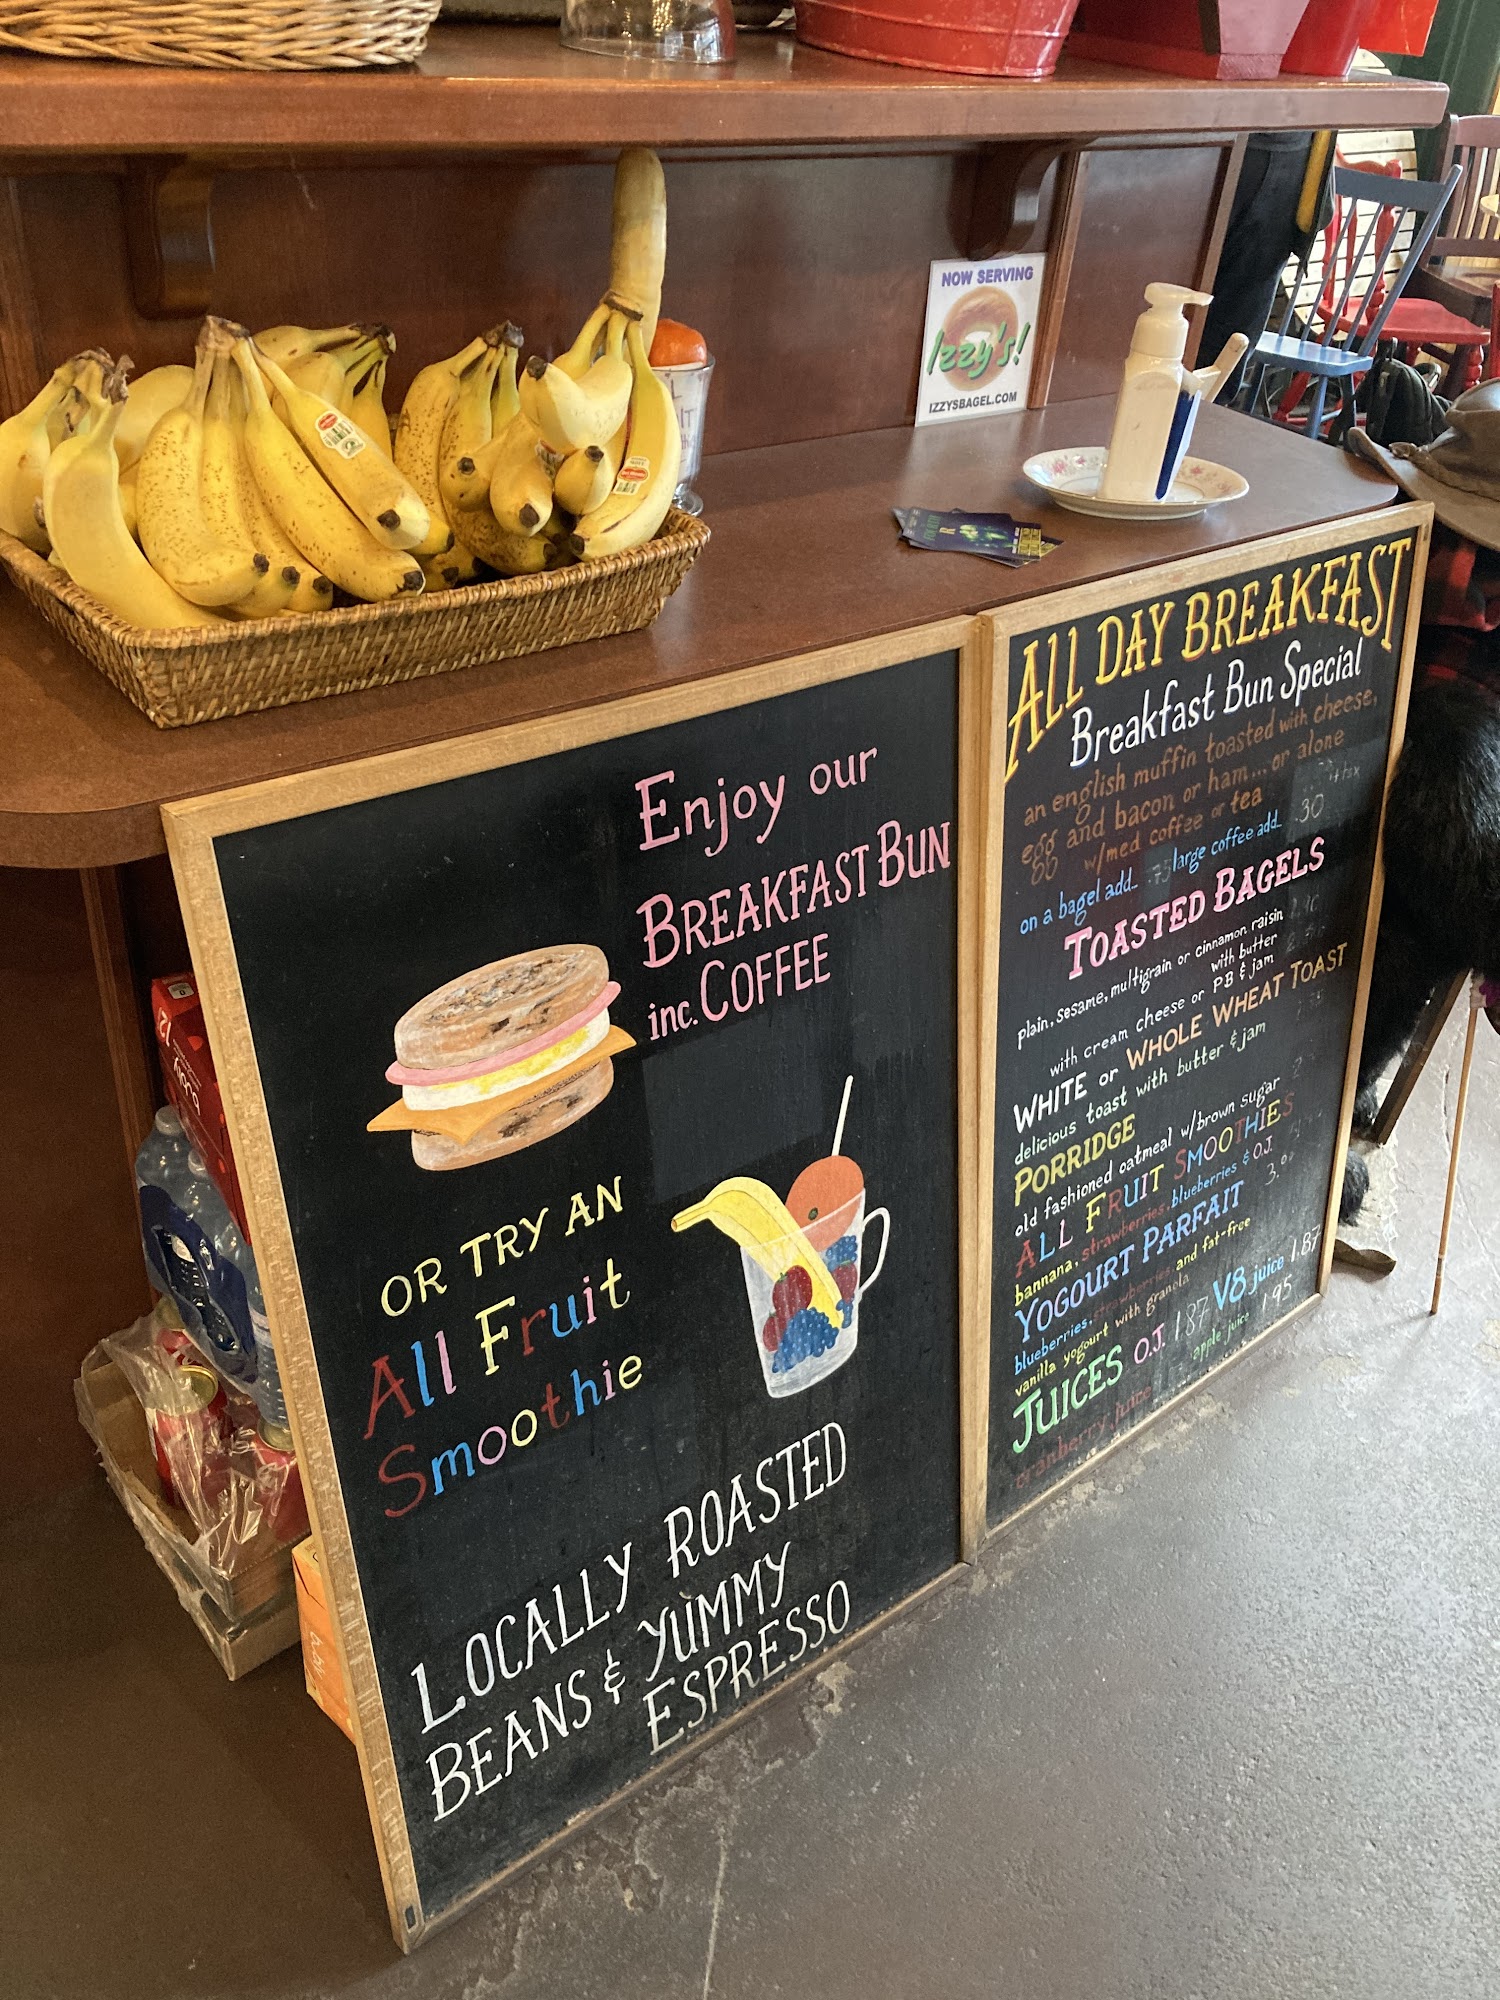 NOW SERVING
Izzy's!
IZZYSBAGEL.COM
Enjoy our
BREAKFAST BUN
inc. COFFEE
OR TRY AN
All Fruit
Smoothie
LOCALLY ROASTED
BEANS & YUMMY
ESPRESSO
ALL DAY BREAKFAST
Breakfast Bun Special
an english muffin toasted with cheese,
egg and bacon or ham... or alone
w/med coffee or tea
on a bagel add... .75 large coffee add... .30
TOASTED BAGELS
plain, sesame, multigrain or cinnamon raisin
with butter
with cream cheese or PB & jam
WHITE or WHOLE WHEAT TOAST
delicious toast with butter & jam
PORRIDGE
old fashioned oatmeal w/brown sugar
ALL FRUIT SMOOTHIES
bannana, strawberries, blueberries & O.J.
YOGOURT PARFAIT
blueberries, strawberries, and fat-free
vanilla yogourt with granola
JUICES O.J. 1.87 V8 juice 1.87
cranberry juice apple juice 1.95